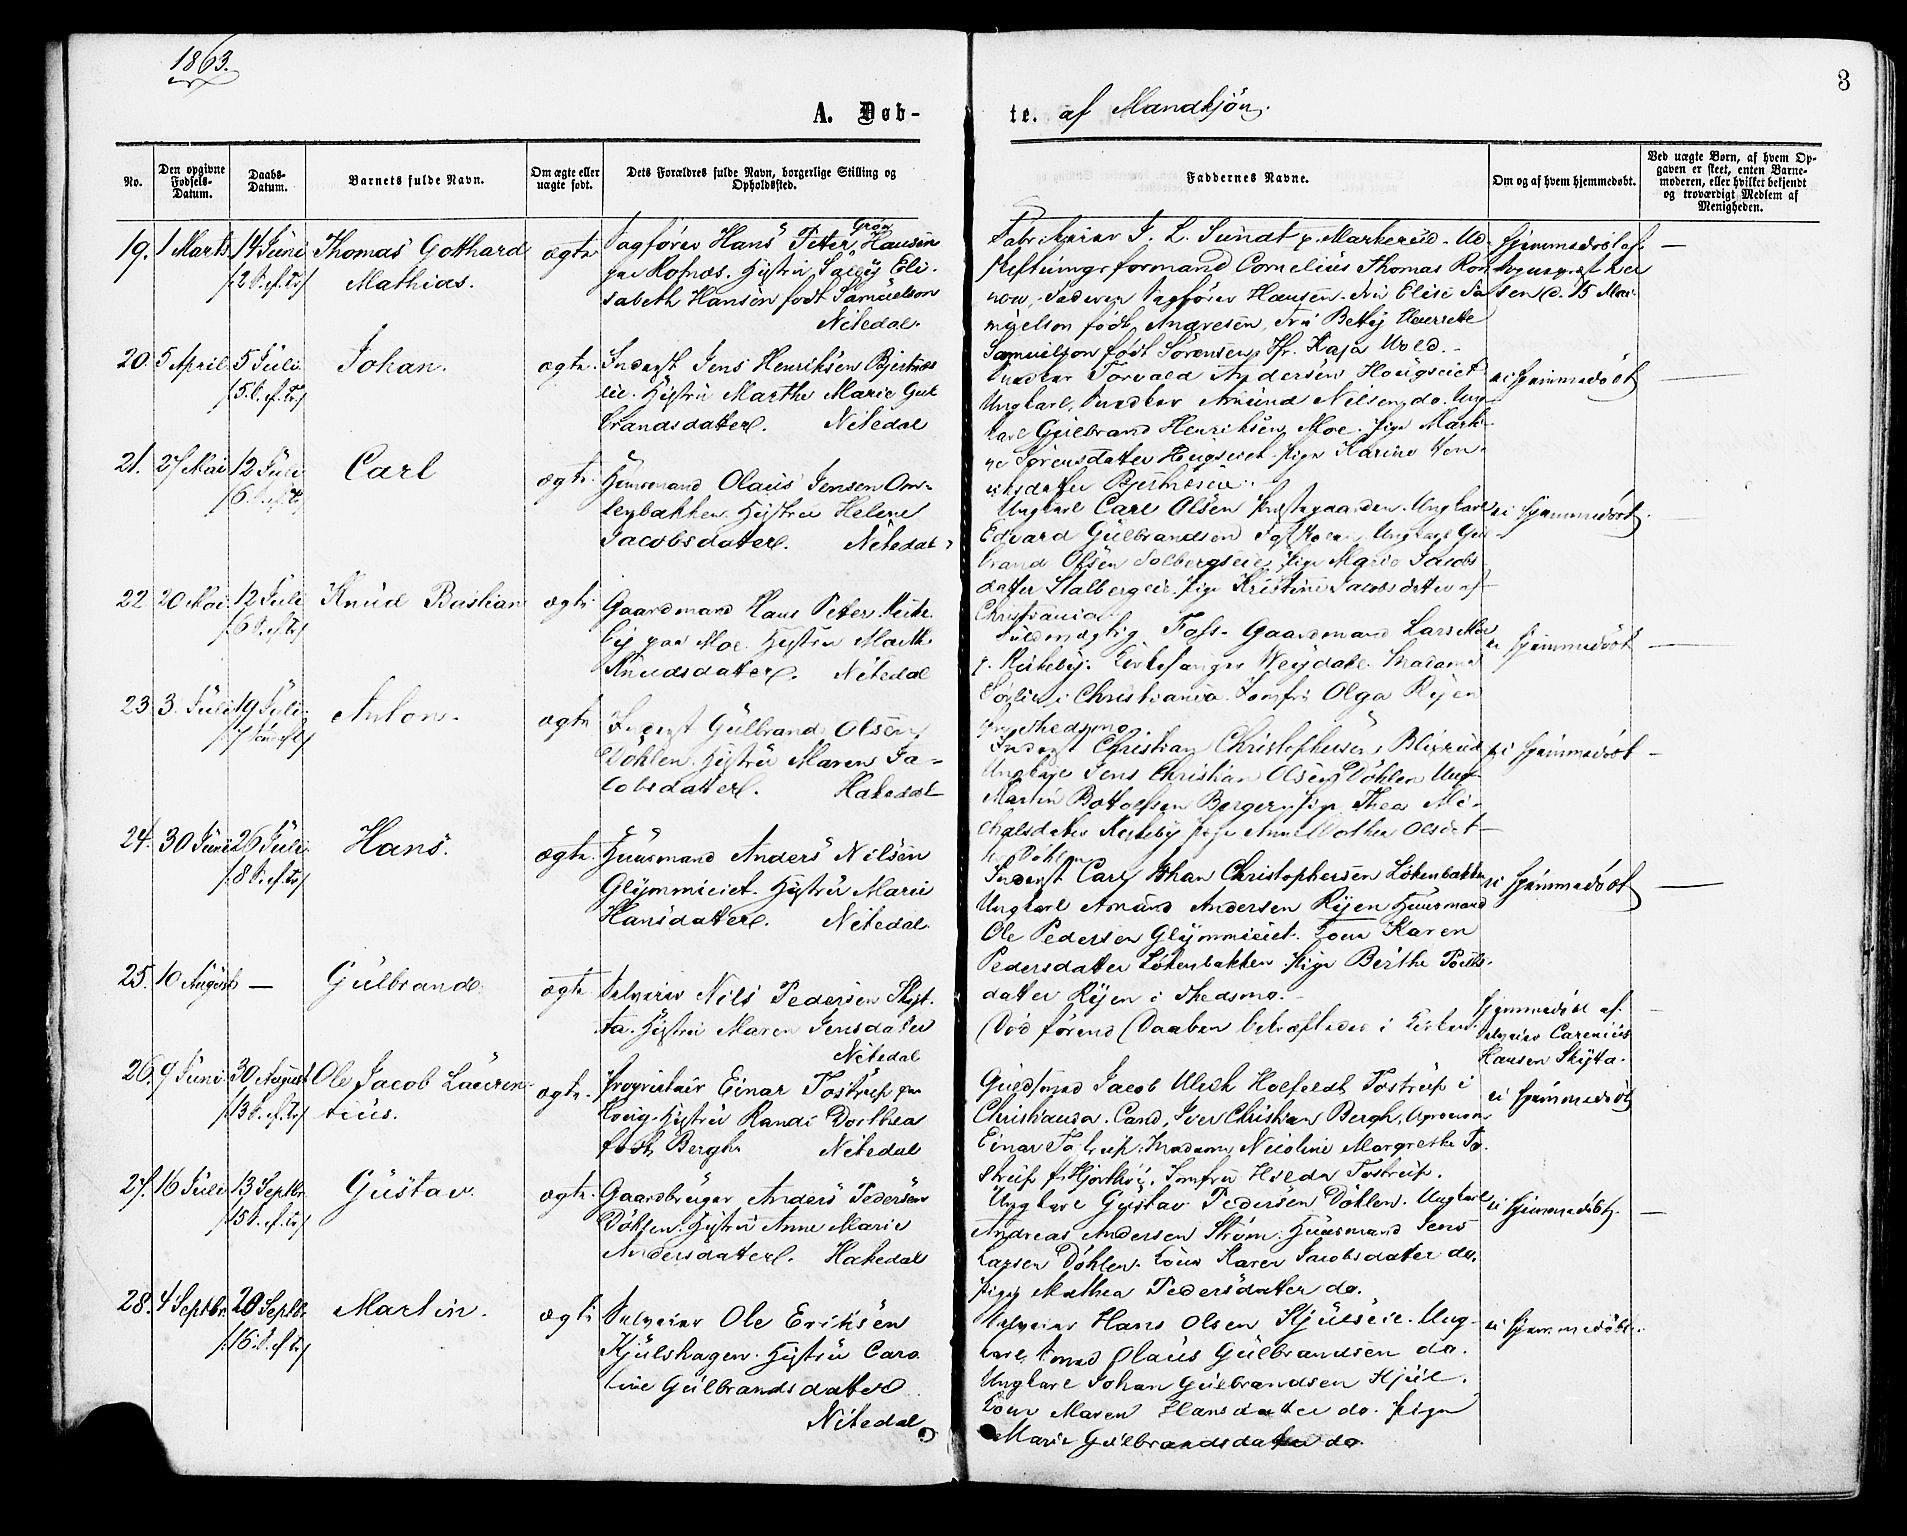 1863.
3
A. Døb-
te. af Mandkjön.
No.
Den opgivne Fødsels-Datum.
Daabs-Datum.
Barnets fulde Navn.
Om ægte eller uægte født.
Dets Forældres fulde Navn, borgerlige Stilling og Opholdssted.
Faddernes Navne.
Om og af hvem hjemmedøbt.
Ved uægte Børn, af hvem Op-
gaven er skeet, enten Barne-
moderen, eller hvilket bekjendt
og troværdigt Medlem af
Menigheden.
19. 1 Marts 14 Juni Thomas Gotthard ægte Sagfører Hans Peter Grøn Hansen
/2 S. ef. Tr/ Mathias.
paa Rofnæs. Hustru Eli-
sabeth Hansen født Samuelson
Nitedal.
Fabrikeier J. L. Sundt p. Markerud. Ud-
skiftningsformand Cornelius Thomas
Faderen Sagfører Hansen. Fru Elise Sa
muelson født Andresen, Fru Betty Henriette
Samuelson født Sørensen, Fr. Kaja Wold.
hjemmedøbt af
15 Mai
20. 5 April 5 Juli Johan. ægte. Inderst Jens Henriksen Bjertnæs
/5 S. ef. Tr/
eie. Hustru Marthe Marie Gul
brandsdatter. Nitedal
Torvald Andersen Hougseiet
Ungkarl, Amund Nilsen do. Ung-
karl Gulbrand Henriksen Moe. Pige
Sørensdatter Hougseiet Pige Karine Hen-
riksdatter Bjertnæseie.
ei hjemmedøbt
21. 27 Mai 12 Juli Carl ægte. Huusmand Olaus Jensen
/6 S. ef. Tr/
Hustru Helene
Jacobsdatter. Nitedal
Ungkarl Carl Olsen Præstegaarden. Ungkarl
Edvard Gulbrandsen Ungkarl Gul-
brand Olsen Solbergseie, Pige Marie Jacobs
datter Pige Kristine Jacobsdatter af
Christiania
ei hjemmedøbt.
22 20 Mai 12 Juli Knud Bastian ægte Gaardmand Hans Peter Kirke
/6 S. ef. Tr/
by paa Moe. Hustru
Knudsdatter. Nitedal
Fuldmægtig Gaardmand Lars Moe
p. Kirkeby. Kirkesanger Madame
i Christiania. Jomfru Olga Ryen
Skedsmo.
ei hjemmedøbt
23. 3. Juli 19 Juli Anton. ægte Inderst Gulbrand Olsen
Døhlen. Hustru Maren Ja-
cobsdatter. Hakedal
Inderst Christian Christophersen
Ungkarl Jens Christian Olsen Døhlen Ungk.
Martin Pige Thea Mi-
chelsdatter Kirkeby Pige Anne
Døhlen
ei hjemmedøbt
24. 30 Juni 26 Juli Hans. ægte. Huusmand Anders Nilsen
/8 S. ef. Tr/
Glymmieiet. Hustru Marie
Hansdatter. Nitedal.
Inderst Carl Johan Christophersen Løkenbakken
Ungkarl Amund Andersen Ryen Huusmand
Ole Pedersen Glymmieiet. Kone Karen
Pedersdatter Løkenbakken. Pige Berthe
datter Ryen i Skedsmo.
ei hjemmedøbt
25. 10 August — Gulbrand ægte Selveier Nils Pedersen Skyt-
ta. Hustru Maren Jensdatter
Nitedal
Død førend Daaben bekræftedes i Kirken.
hjemmedøbt af
Selveier Carenius
Hansen Skytta.
26. 9 Juni 30 August Ole Jacob Lauren- ægte. Proprietair Einar Tostrup paa
/13 S. ef. Tr/ tius.
Houg. Hustru Randi Dorthea
født Bergh. Nitedal
Guldsmed Jacob Ulrik Holfeldt Tostrup i
Christiania. Cand. Iver Christian Bergh,
Einar Tostrup. Madame Nicoline Margrethe To-
strup f. Hjorthøi. Jomfru Hilda Tostrup.
ei hjemmedøbt
27. 16 Juli 13 Septbr. Gustav. ægte. Gaardbruger Anders Pedersen
/15 S. ef. Tr/
Døhlen. Hustru Anne Marie
Andersdatter. Hakedal
Ungkarl Gustav Pedersen Døhlen. Ungkarl
Andreas Andersen Strøm. Huusmand Jens
Larsen Døhlen. Kone Karen Jacobsdatter do.
Pige Mathea Pedersdatter do.
ei hjemmedøbt.
28. 4 Septbr. 20 Septbr. Martin. ægte Selveier Ole Eriksen
/16 S. ef. Tr/
Kjulshagen. Hustru Caro
line Gulbrandsdatter
Nitedal
Selveier Hans Olsen Kjulseie. Ung-
karl Smed Olaus Gulbrandsen do.
Ungkarl Johan Gulbrandsen Kjul.
Kone Maren Hansdatter do. Pige
Marie Gulbrandsdatter do
ei hjemmedøbt.